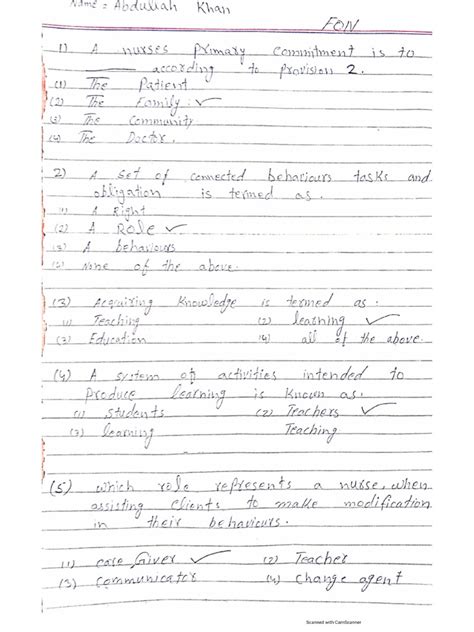 Name = Abdullah Khan
FON
1). A nurses primary commitment is to
_____ according to provision 2.
(1) The Patient
(2) The Family. ✓
(3) The Community
(4) The Doctor.
2) A set of connected behaviours tasks and
obligation is termed as.
(1) A Right
(2) A Role ✓
(3) A behaviours
(4) None of the above.
(3) Acquiring Knowledge is termed as.
(1) Teaching (2) learning ✓
(3) Education (4) all of the above.
(4) A system of activities intended to
produce learning is known as.
(1) Students (2) Teachers ✓
(3) learning Teaching
(5) which role represents a nurse, when
assisting clients to make modification
in their behaviours.
(1) care Giver ✓ (2) Teacher
(3) Communicator (4) change agent
Scanned with CamScanner